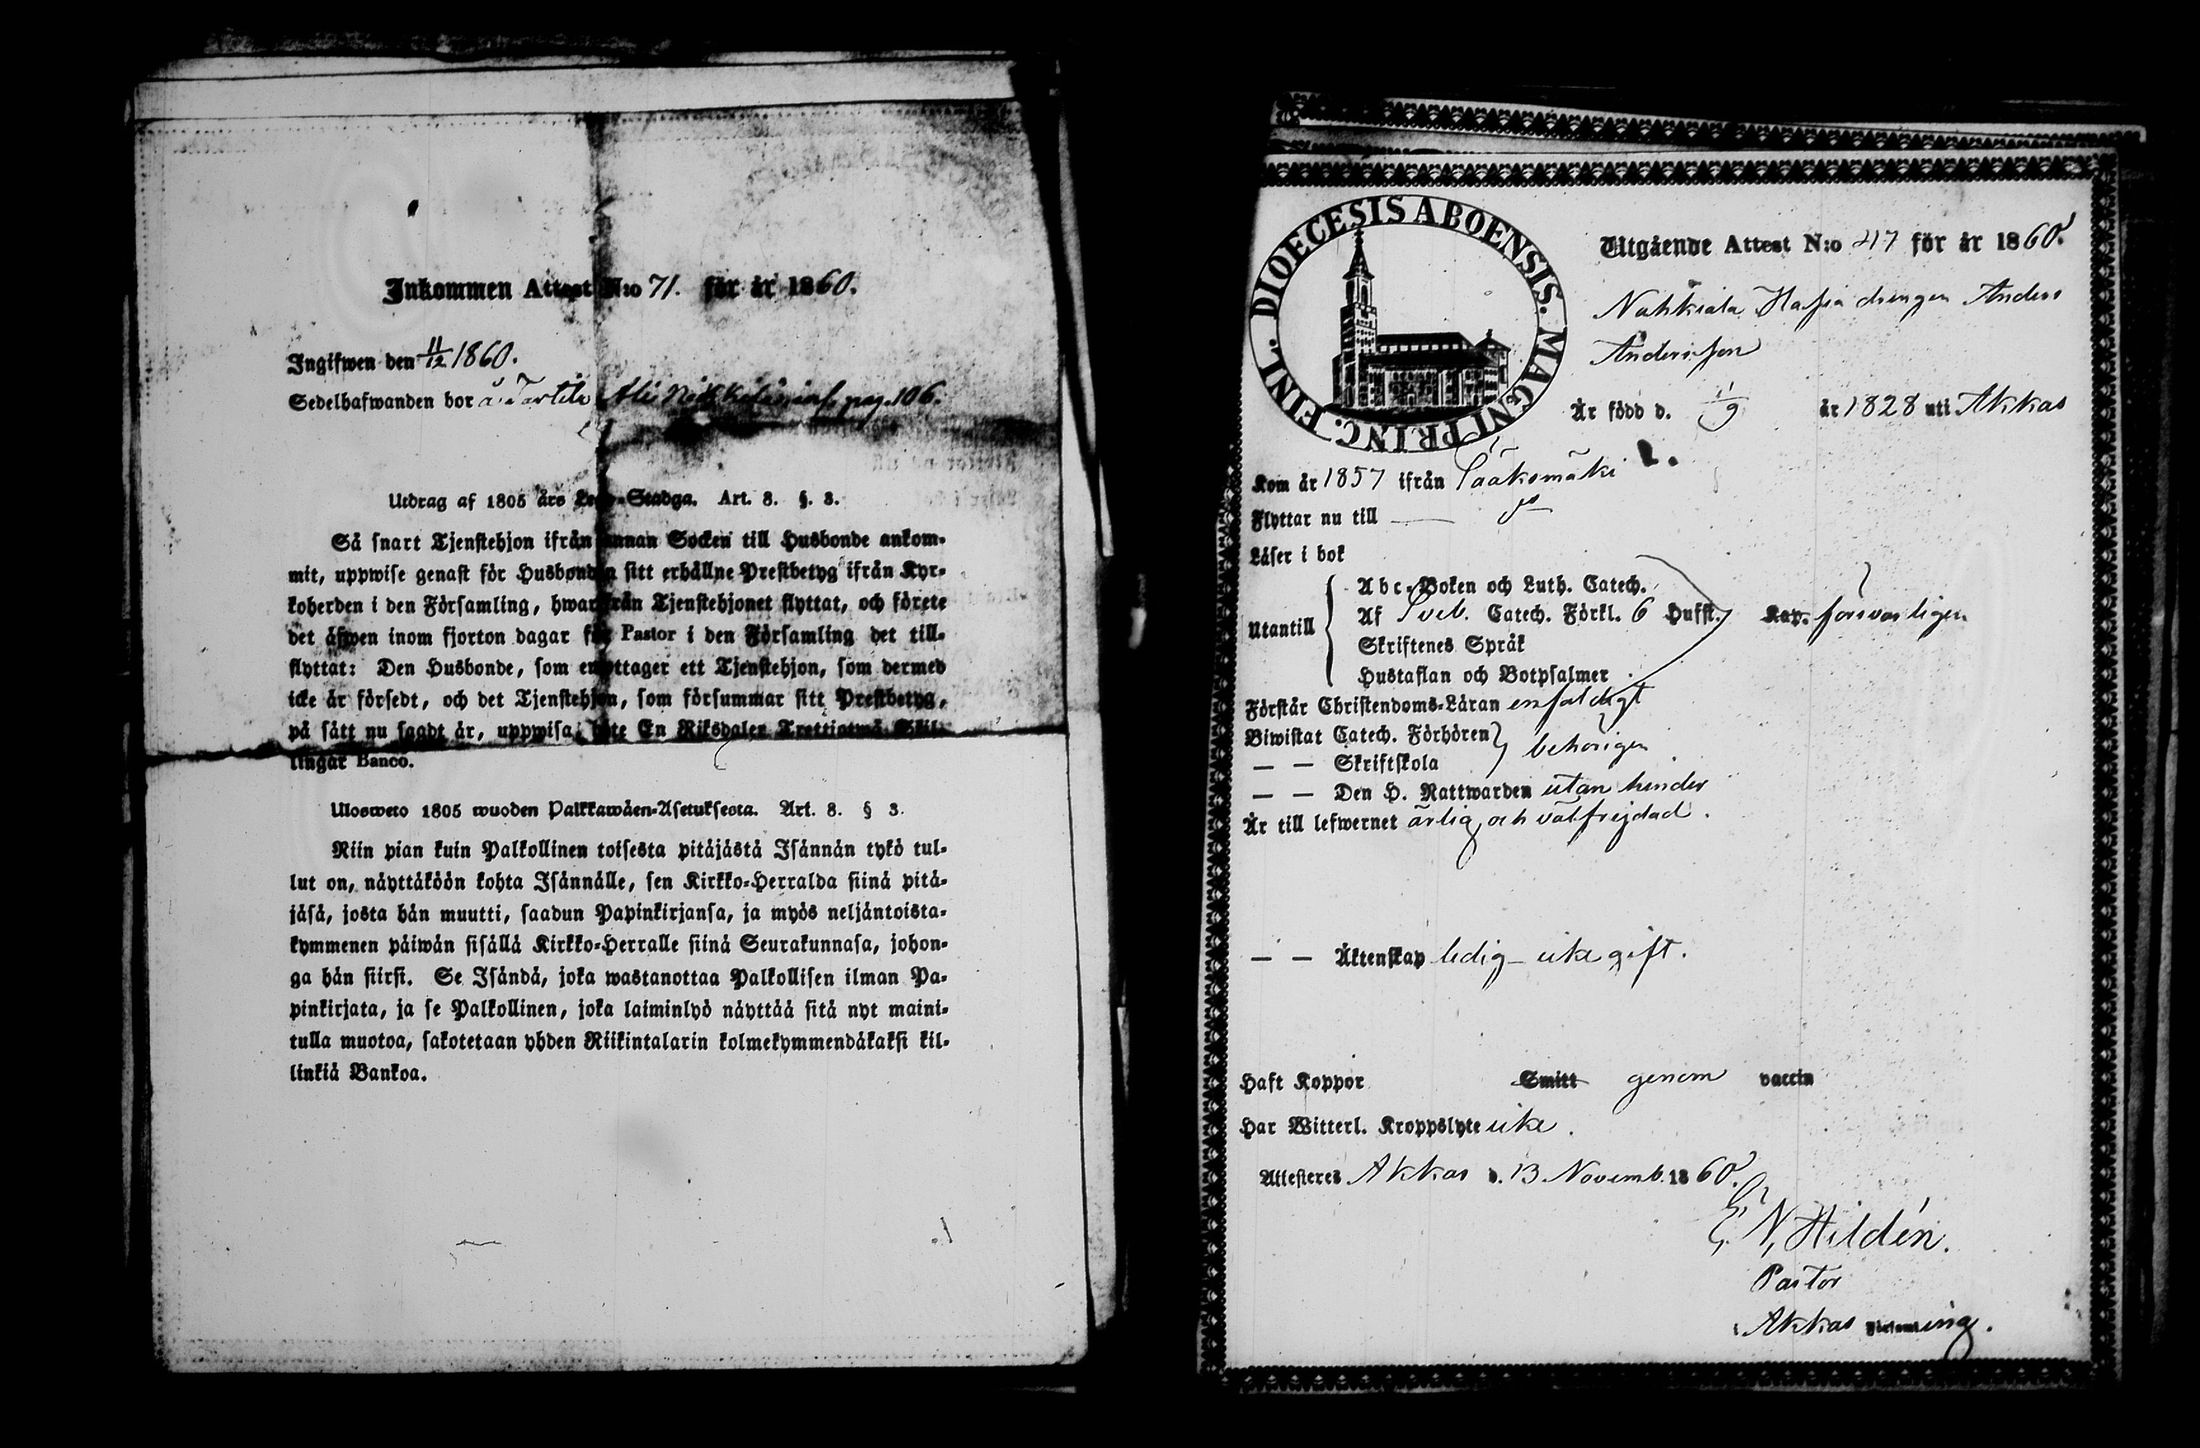 Inkommen Attest N:o 71. för år 1860.
Ingifwen den 11/12 1860.
Sedelhafwanden bor å Tarttila Ali pag. 106.
Utdrag af 1805 års Lego-Stadga. Art. 8. §. 3.
Så snart Tjenstehjon ifrån annan Socken till Husbonde ankom-
mit, uppwise genast för Husbonden sitt erhållne Prestbetyg ifrån Kyr-
koherden i den Församling, hwarifrån Tjenstehjonet flyttat, och förete
det äfwen inom fjorton dagar för Pastor i den Församling det till-
flyttat: Den Husbonde, som emottager ett Tjenstehjon, som dermed
icke är försedt, och det Tjenstehjon, som försummar sitt Prestbetyg,
på sätt nu sagdt är, uppwisa, böte En Riksdaler Trettiotwå Skil-
lingar Banco.
Ulosweto 1805 wuoden Palkkawäen-Asetuksesta. Art. 8. § 3.
Niin pian kuin Palkollinen toisesta pitäjästä Isännän tykö tul-
lut on, näyttäköön kohta Isännälle, sen Kirkko-Herralda siinä pitä-
jäsä, josta hän muutti, saadun Papinkirjansa, ja myös neljäntoista-
kymmenen päiwän sisällä Kirkko-Herralle siinä Seurakunnasa, johon-
ga hän siirsi. Se Isändä, joka wastanottaa Palkollisen ilman Pa-
pinkirjata, ja se Palkollinen, joka laiminlyö näyttää sitä nyt maini-
tulla muotoa, sakotetaan yhden Riikintalarin kolmekymmendäkaksi kil-
linkiä Bankoa.
DIOECESIS ABOENSIS. MAGNI PRINC. FINL.
Utgående Attest N:o 47 för år 1860.
Nahkiala drengen Anders
Andersson
Är född d. 1/9 år 1828 uti Akkas
Kom år 1857 ifrån Sääksmäki
Flyttar nu till —
Läser i bok
Utantill
Abc-Boken och Luth. Catech.
Af Sveb. Catech. Förkl. 6 Hufst. Kap. försvarligen
Skriftenes Språk
Hustaflan och Botpsalmer
Förstår Christendoms-Läran enfaldigt
Biwistat Catech. Förhören behörigen
— — Skriftskola
— — Den H. Nattwarden utan hinder
Är till lefwernet ärlig och välfrejdad.
— — Äktenskap ledig – icke gift.
Haft Koppor Smitt genom vaccin
Har Witterl. Kroppslyte icke.
Attesteres Akkas d. 13 Novemb. 1860.
E. N. Hildén.
Pastor
i Akkas Församling.